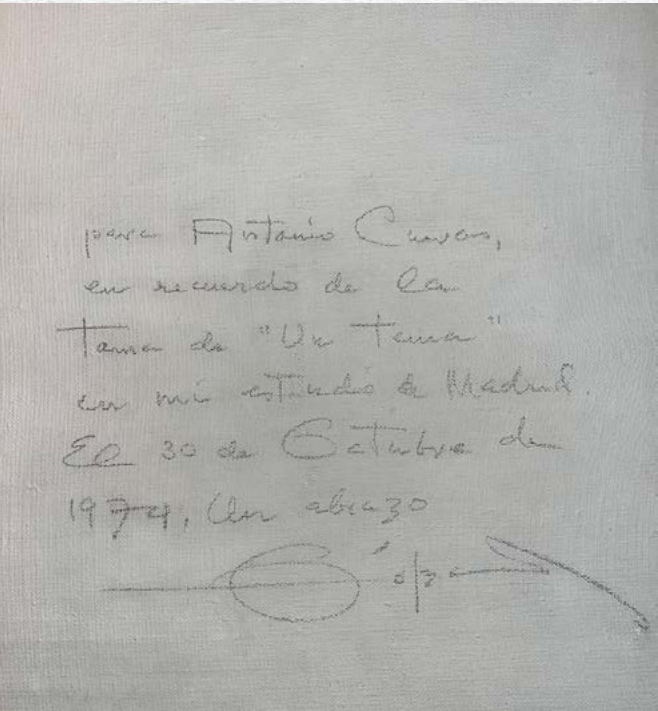 para Antonio Cuevas,
en recuerdo de la
Toma de "Un Tema"
en mi estudio de Madrid.
El 30 de Octubre de
1974, Un abrazo